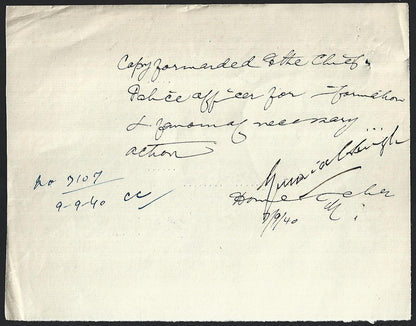 Copy forwarded to the Chief
Police officer for information
& necessary
action
No 3107
9-9-40 CC
Singh
Home
7/9/40